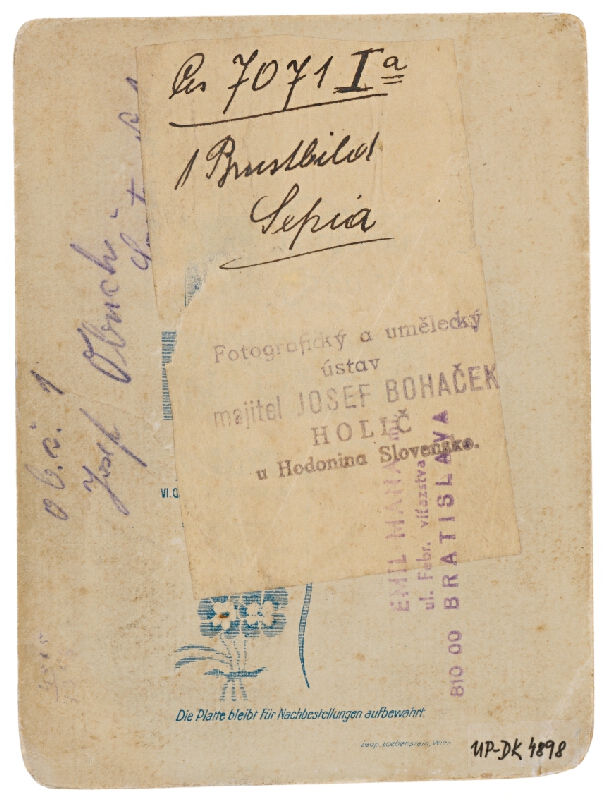 7071 Ia
1 Brustbild
Sepia
Fotografický a umělecký
ústav
majitel JOSEF BOHAČEK
HOLIČ
u Hodonina Slovensko.
EMIL
ul. Febr. víťazstva
810 00 BRATISLAVA
ob. č. 1
Josef Obuch
VI.
Die Platte bleibt für Nachbestellungen aufbewahrt.
UP-DK 4898